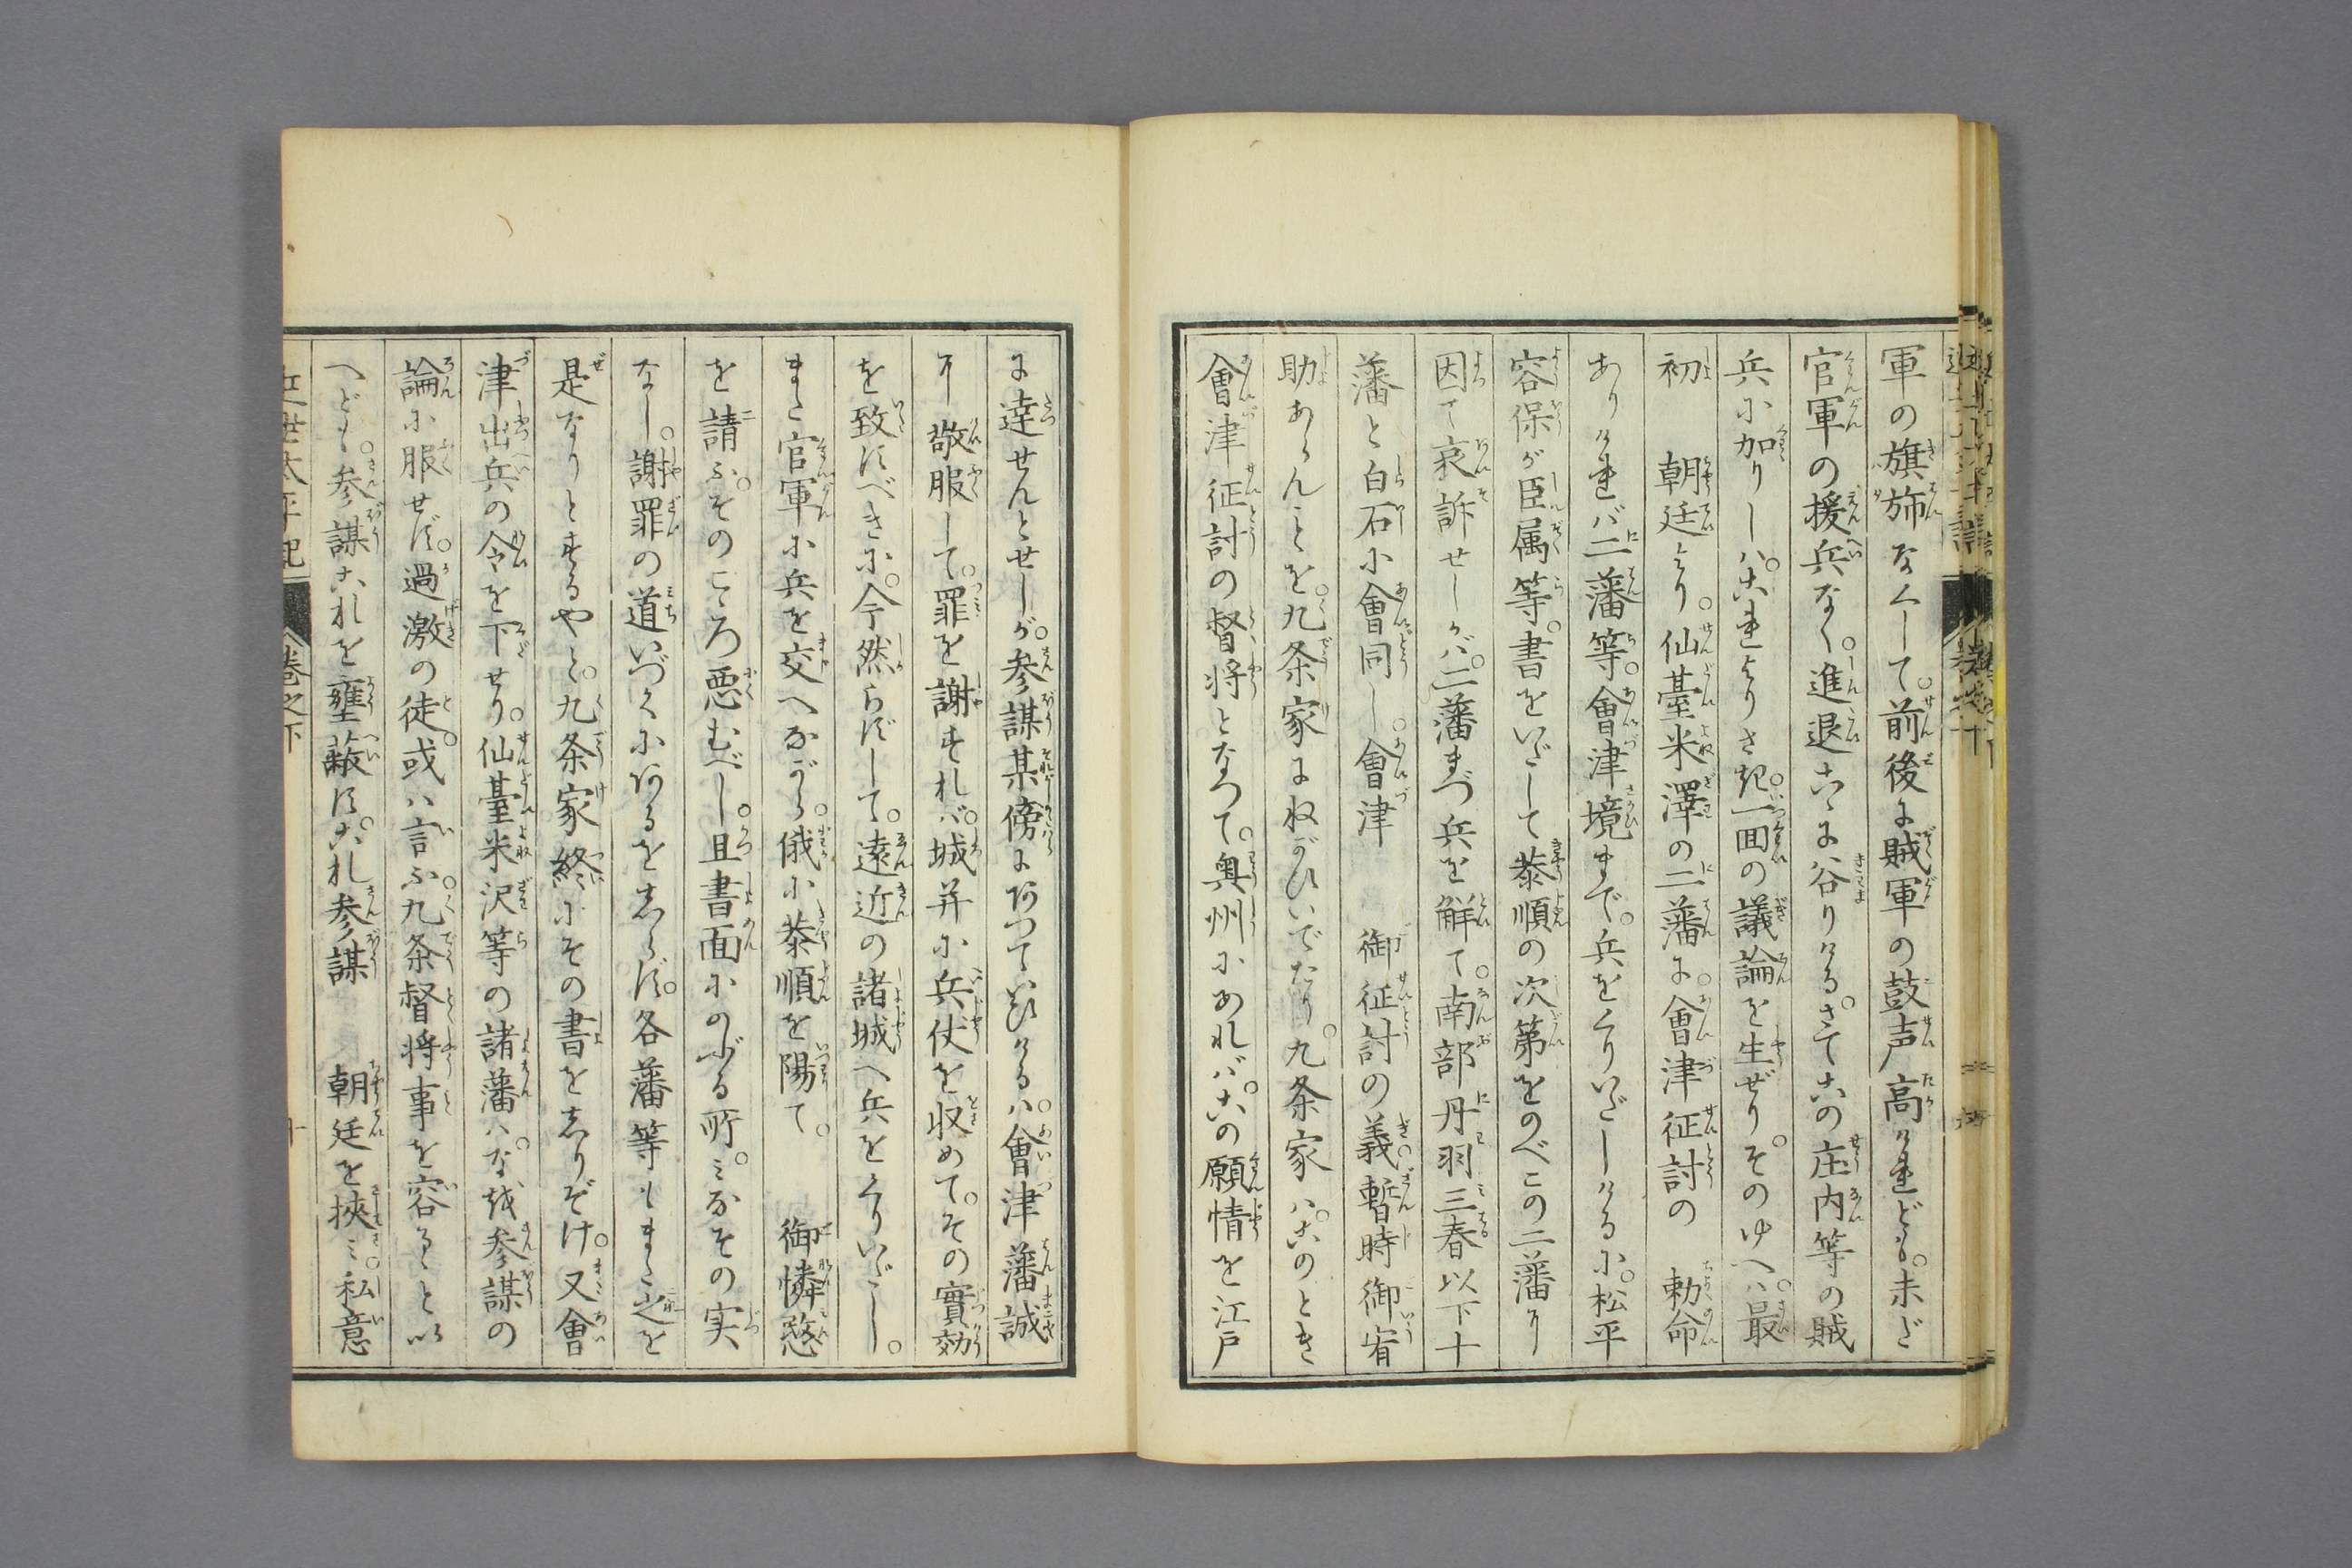 軍の旗旆なくして。前後に賊軍の鼓声高けれども。未だ
官軍の援兵なく。進退こゝに谷りける。さてこの庄内等の賊
兵に加りしハ。これよりさき。一回の議論を生ぜり。そのゆへハ。最
初　朝廷より。仙臺米澤の二藩に。會津征討の　勅命
ありけれバ二藩等。會津境まで。兵をくりいだしけるに。松平
容保が臣属等。書をいだして恭順の次第をのべこの二藩に
因て哀訴せしかバ。二藩まづ兵を解て。南部丹羽三春以下十
藩と白石に會同し。會津　御征討の義。暫時御宥
助あらんことを。九条家にねがひいでたり。九条家ハ。このとき
會津征討の督将となつて。奥州にあれバ。この願情を江戸
に達せんとせしが。参謀某傍にありていひけるハ。會津藩誠
に敬服して。罪を謝すれバ。城并に兵仗を収めて。その實効
を致すべきに。今然らずして。遠近の諸城へ兵をくりいだし。
また官軍に兵を交へながら。俄に恭順を陽て。　御憐愍
を請ふ。そのこゝろ悪むべし。且書面にのぶる所。ミなその実
なし。謝罪の道いづくにあるをしらず。各藩等もまた之を
是なりとするやと。九条家終にその書をしりぞけ。又會
津出兵の令を下せり。仙臺米沢等の諸藩ハ。なを参謀の
論に服せず。過激の徒。或ハ言ふ。九条督将事を容るゝと以
へども。参謀これを壅蔽す。これ参謀　朝廷を挾ミ。私意
近世太平記　巻之下　十